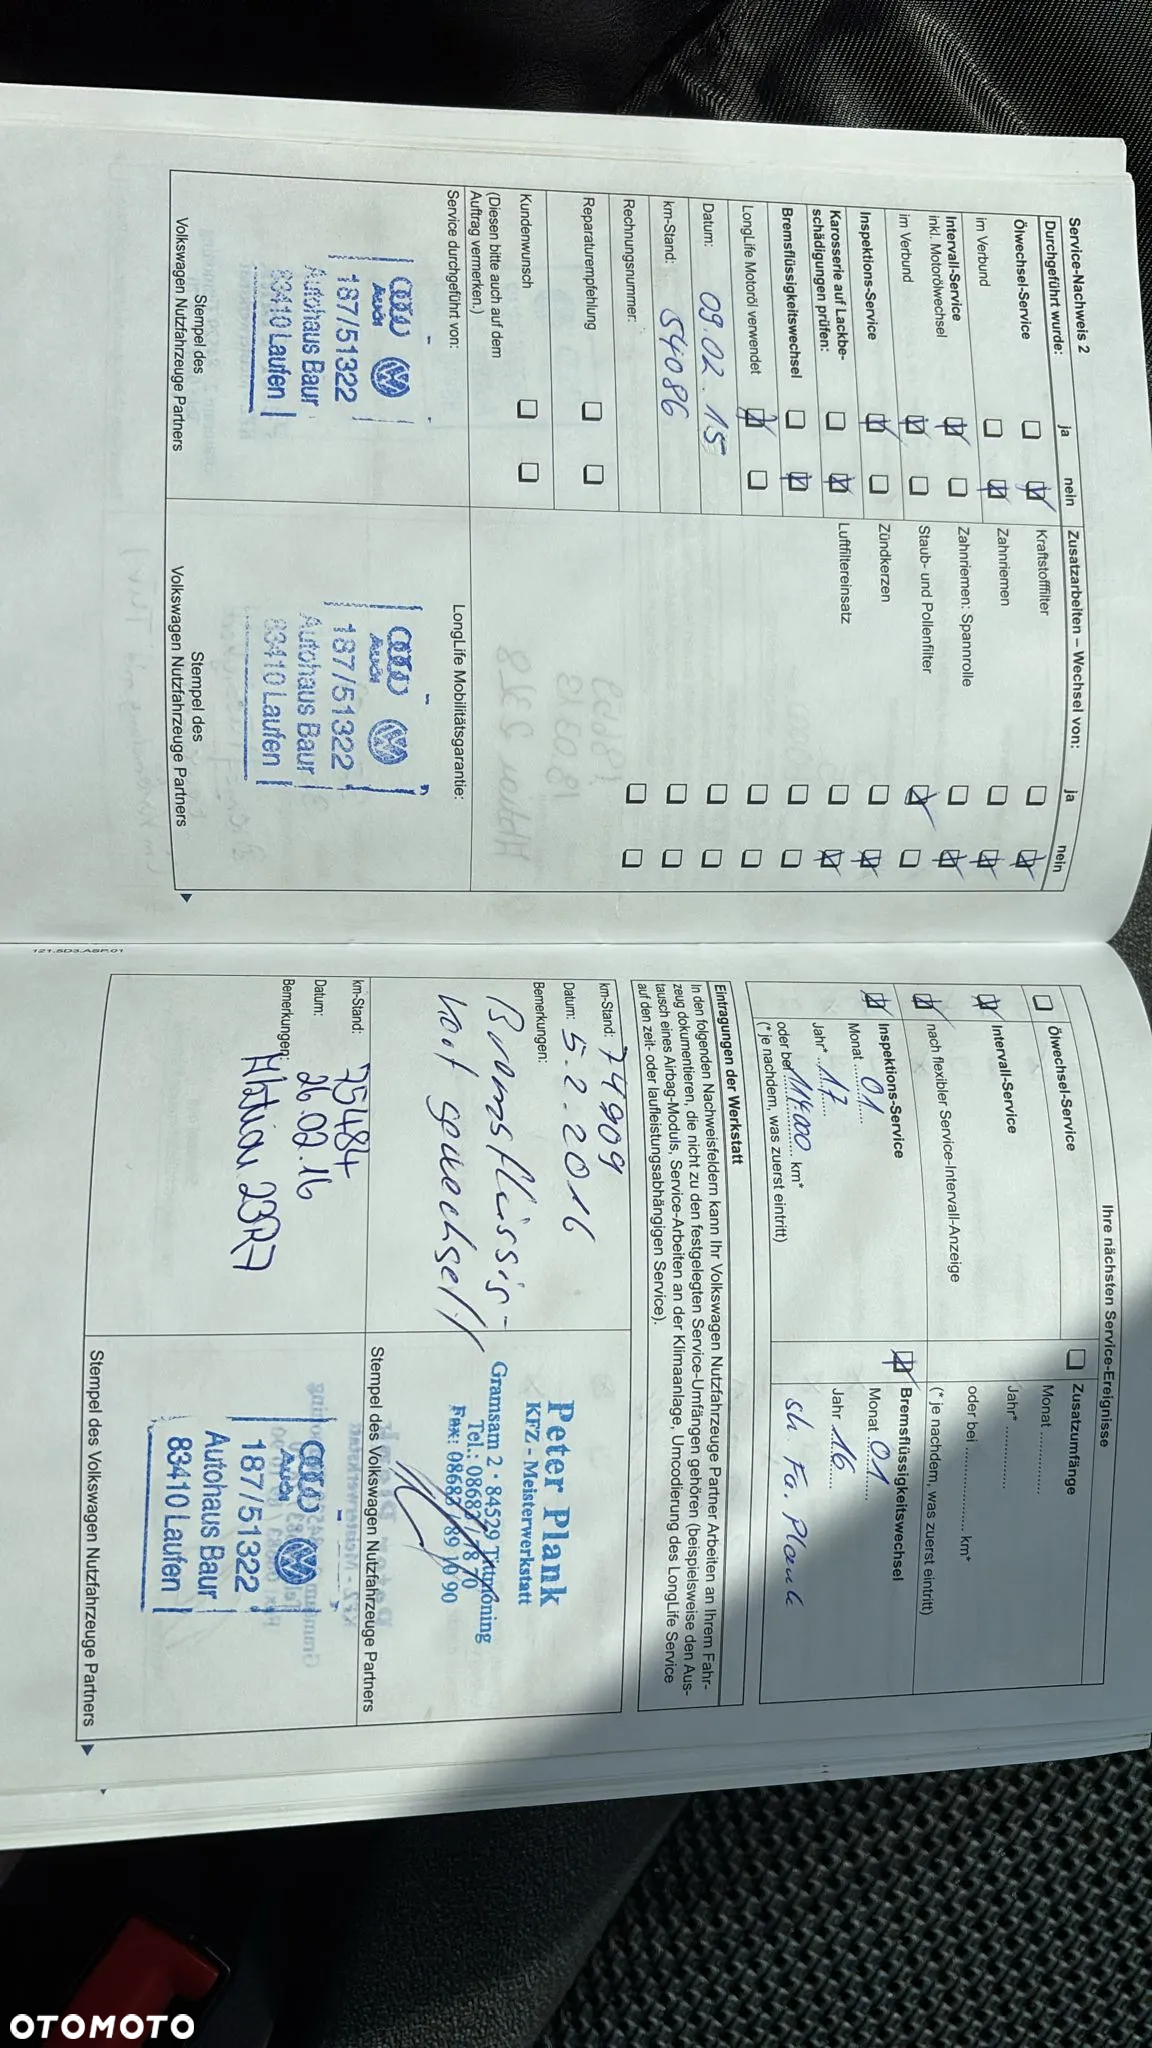 Service-Nachweis 2
Durchgeführt wurde: ja nein
Ölwechsel-Service
im Verbund
Intervall-Service
inkl. Motorölwechsel
im Verbund
Inspektions-Service
Karosserie auf Lackbe-
schädigungen prüfen:
Bremsflüssigkeitswechsel
LongLife Motoröl verwendet
Datum: 09.02.15
km-Stand: 54086
Rechnungsnummer:
Reparaturempfehlung
Kundenwunsch
(Diesen bitte auch auf dem
Auftrag vermerken.)
Service durchgeführt von:
Audi
187/51322
Autohaus Baur
83410 Laufen
Stempel des
Volkswagen Nutzfahrzeuge Partners
Zusatzarbeiten – Wechsel von: ja nein
Kraftstofffilter
Zahnriemen
Zahnriemen: Spannrolle
Staub- und Pollenfilter
Zündkerzen
Luftfiltereinsatz
LongLife Mobilitätsgarantie:
Audi
187/51322
Autohaus Baur
83410 Laufen
Stempel des
Volkswagen Nutzfahrzeuge Partners
121.5D3.ASP.01
Ihre nächsten Service-Ereignisse
Ölwechsel-Service
Intervall-Service
nach flexibler Service-Intervall-Anzeige
Inspektions-Service
Monat 01
Jahr* 17
oder bei 114.000 km*
(* je nachdem, was zuerst eintritt)
Zusatzumfänge
Monat
Jahr*
oder bei km*
(* je nachdem, was zuerst eintritt)
Bremsflüssigkeitswechsel
Monat 01
Jahr 16
sh. Fa. Plank
Eintragungen der Werkstatt
In den folgenden Nachweisfeldern kann Ihr Volkswagen Nutzfahrzeuge Partner Arbeiten an Ihrem Fahr-
zeug dokumentieren, die nicht zu den festgelegten Service-Umfängen gehören (beispielsweise den Aus-
tausch eines Airbag-Moduls, Service-Arbeiten an der Klimaanlage, Umcodierung des LongLife Service
auf den zeit- oder laufleistungsabhängigen Service).
km-Stand: 74909
Datum: 5.2.2016
Bemerkungen:
Bremsflüssig-
keit gewechselt
Peter Plank
KFZ - Meisterwerkstatt
Gramsam 2 · 84529 Tittmoning
Tel.: 08683 / 8 70
Fax: 08683 / 89 10 90
Stempel des Volkswagen Nutzfahrzeuge Partners
km-Stand: 75484
Datum: 26.02.16
Bemerkungen:
Aktion 23R7
Audi
187/51322
Autohaus Baur
83410 Laufen
Stempel des Volkswagen Nutzfahrzeuge Partners
OTOMOTO